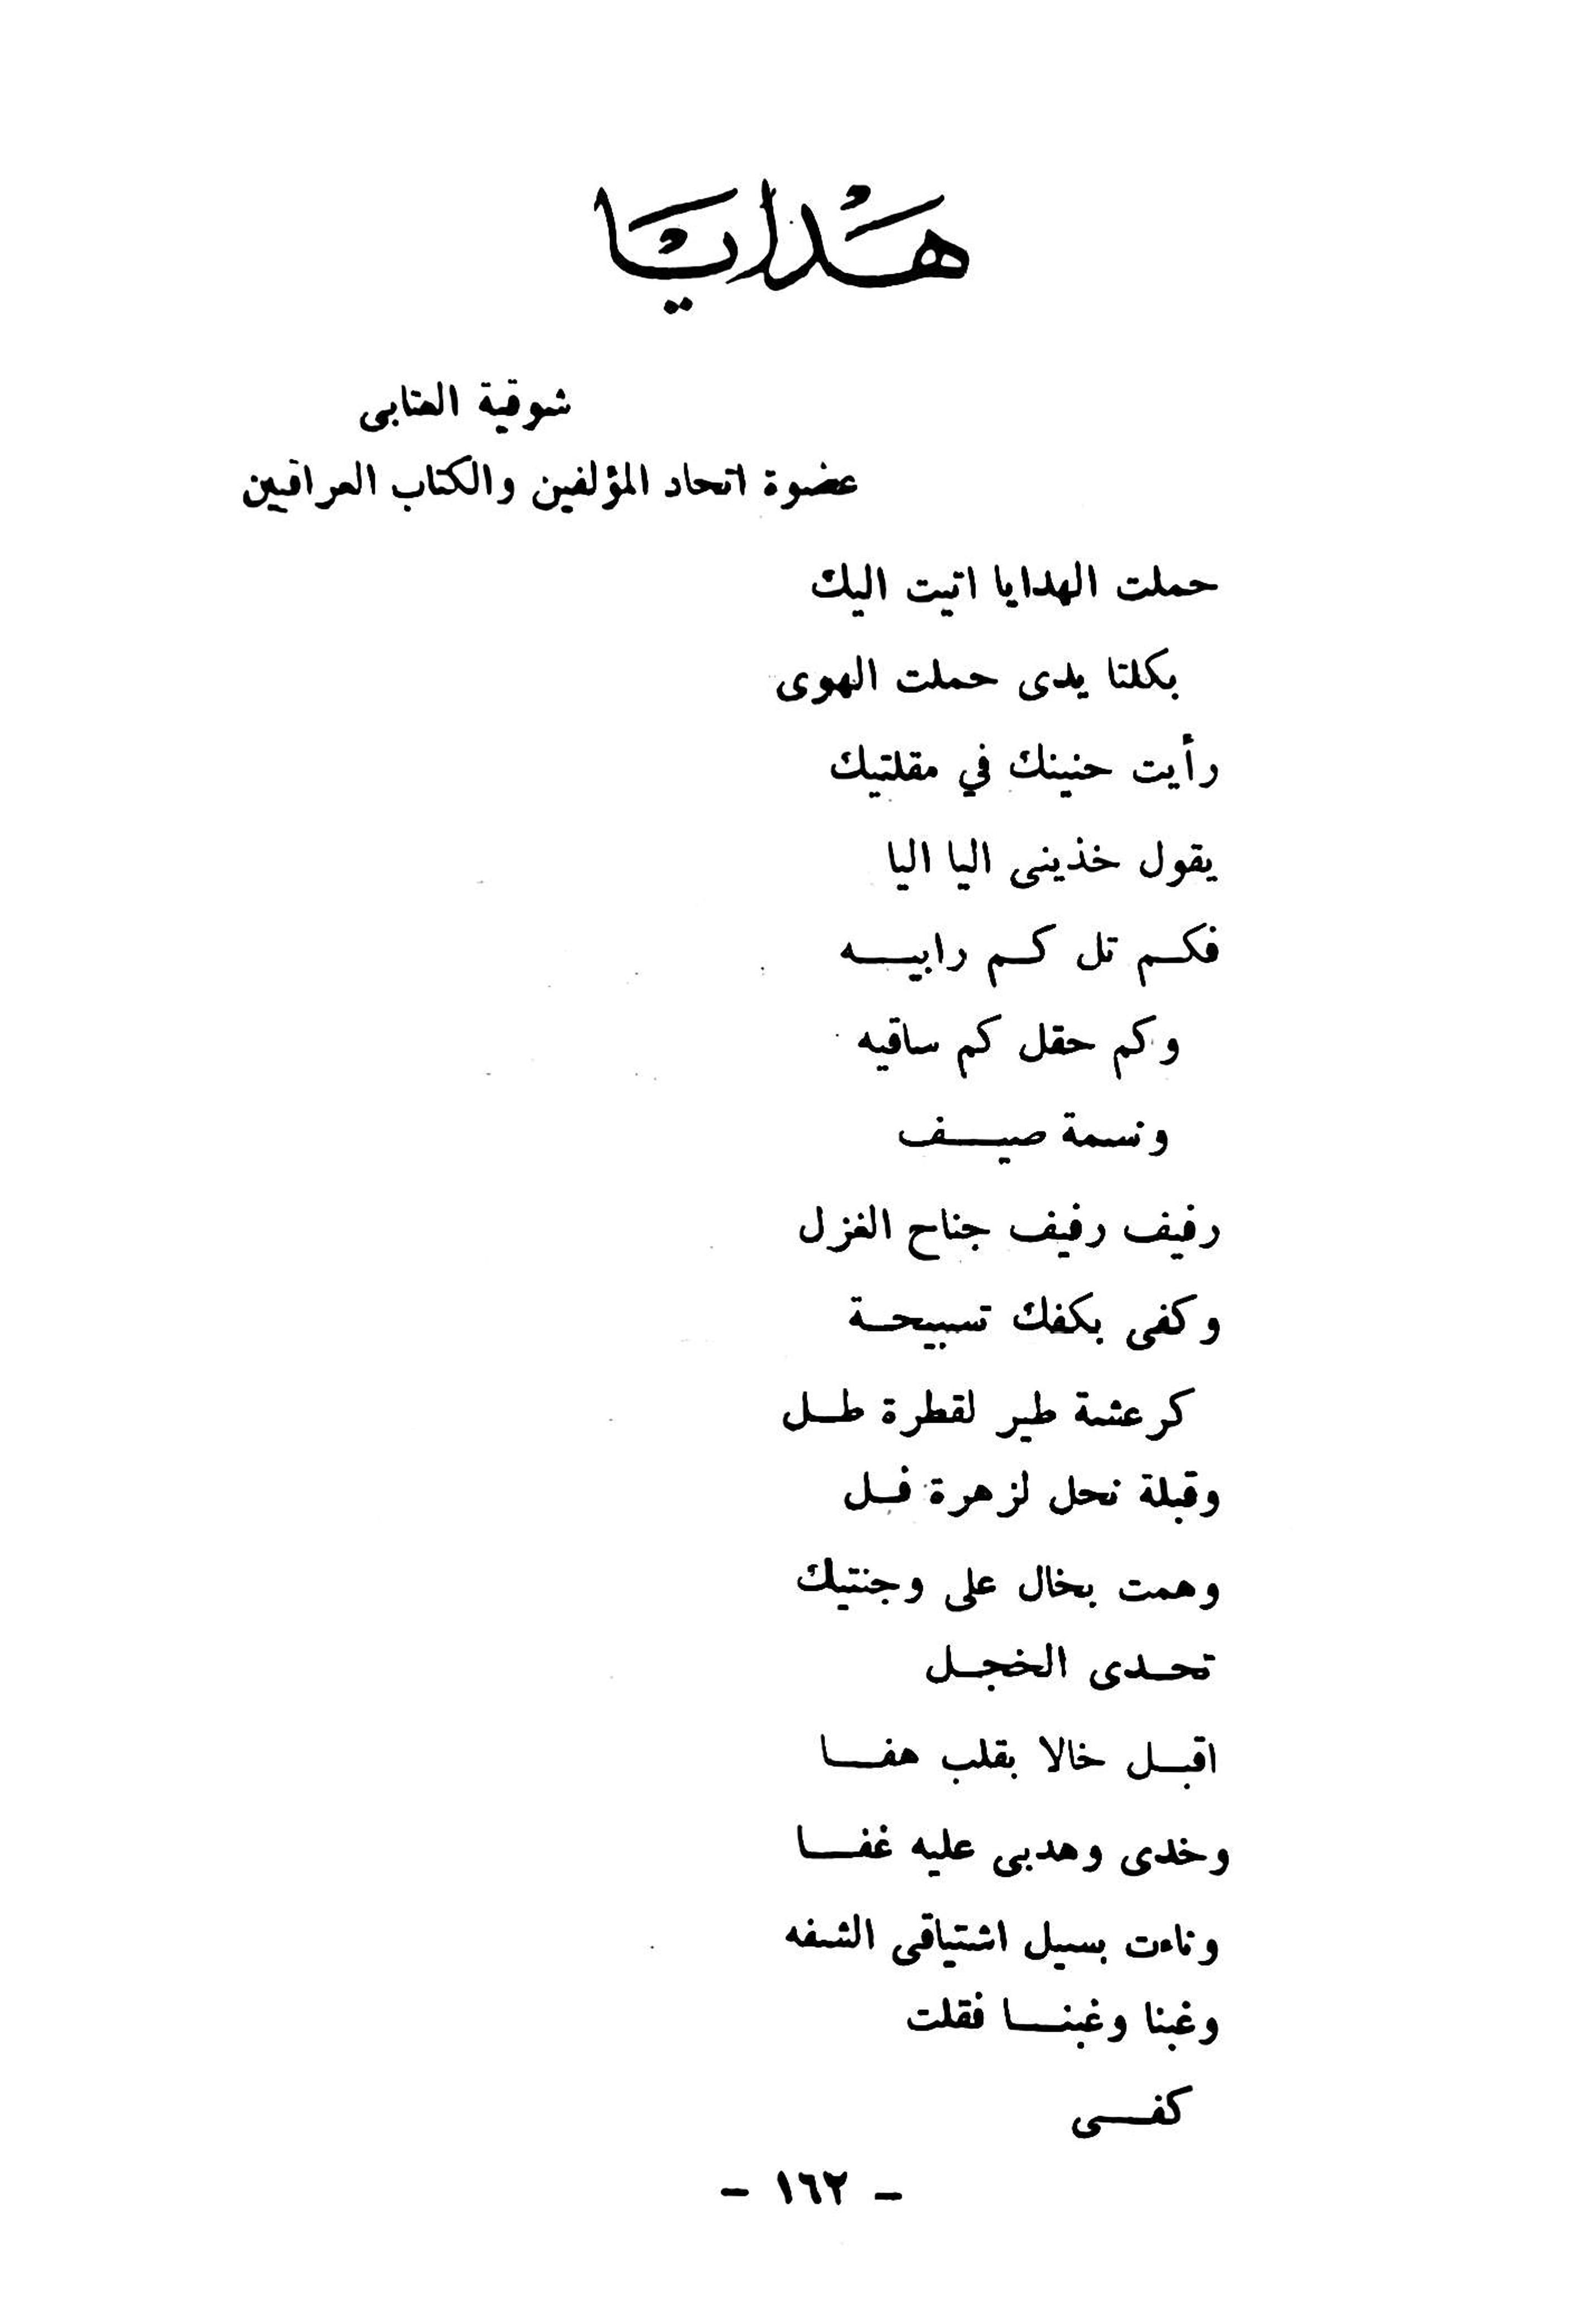 هَدايَا
شوقية العتابى
عضوة اتحاد المؤلفين والكتاب العراقين
حملت الهدايا اتيت اليك
بكلتا يدى حملت الهوى
رأيت حنينك في مقلتيك
يقول خذينى اليا اليا
فكم تل كم رابيه
وكم حقل كم ساقيه
ونسمة صيف
رفيف رفيف جناح الغزل
وكفى بكفك تسبيحة
كرعشة طير لقطرة طل
وقبلة نحل لزهرة فل
وهمت بخال على وجنتيك
تحدى الخجل
اقبل خالا بقلب هفا
وخدى وهدبى عليه غفا
وناءت بسيل اشتياقى الشفه
وغبنا وغبنا فقلت
كفى
– ١٦٢ –